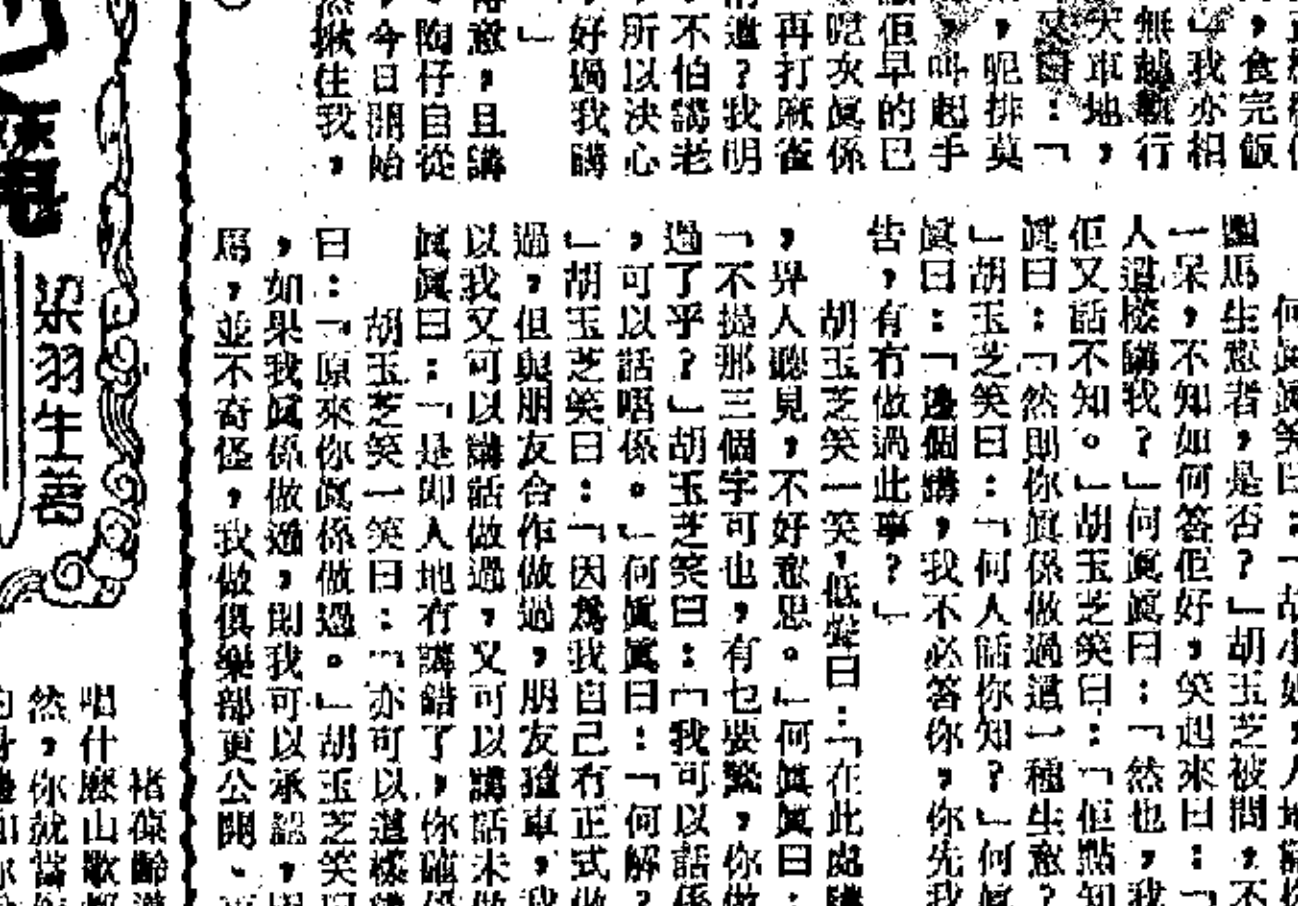 ，食完飯
」我亦相
無越軌行
天車地，
又曰：「
，呢排莫
，叫起手
佢早的已
呢次眞係
再打麻雀
道？我明
不怕講老
所以決心
好過我講
」
意，且講
，陶仔自從
，今日開始
揪住我，
何眞眞笑曰：「胡小姐，人地
馬生意者，是否？」胡玉芝被問，不
一呆，不知如何答佢好，笑起來曰：「
人這樣講我？」何眞眞曰：「然也，我
佢又話不知。」胡玉芝笑曰：「佢點知
眞曰：「然則你眞係做過這一種生意？
」胡玉芝笑曰：「何人話你知？」何眞
眞曰：「邊個講，我不必答你，你先我
告，有冇做過此事？」
胡玉芝笑一笑，低聲曰：「在此處講
，畀人聽見，不好意思。」何眞眞曰：
「不提那三個字可也，有乜要緊，你做
過了乎？」胡玉芝笑曰：「我可以話係
，可以話唔係。」何眞眞曰：「何解？
」胡玉芝笑曰：「因爲我自己冇正式做
過，但與朋友合作做過，朋友揸車，我
以我又可以講話做過，又可以講話未做
眞眞曰：「是即人地冇講錯了，你確係
胡玉芝笑一笑曰：「亦可以這樣講
曰：「原來你眞係做過。」胡玉芝笑曰
，如果我眞係做過，則我可以承認，因
馬，並不奇怪，我做俱樂部更公開、
梁羽生著
褚葆齡
唱什麽山歌
然，你就